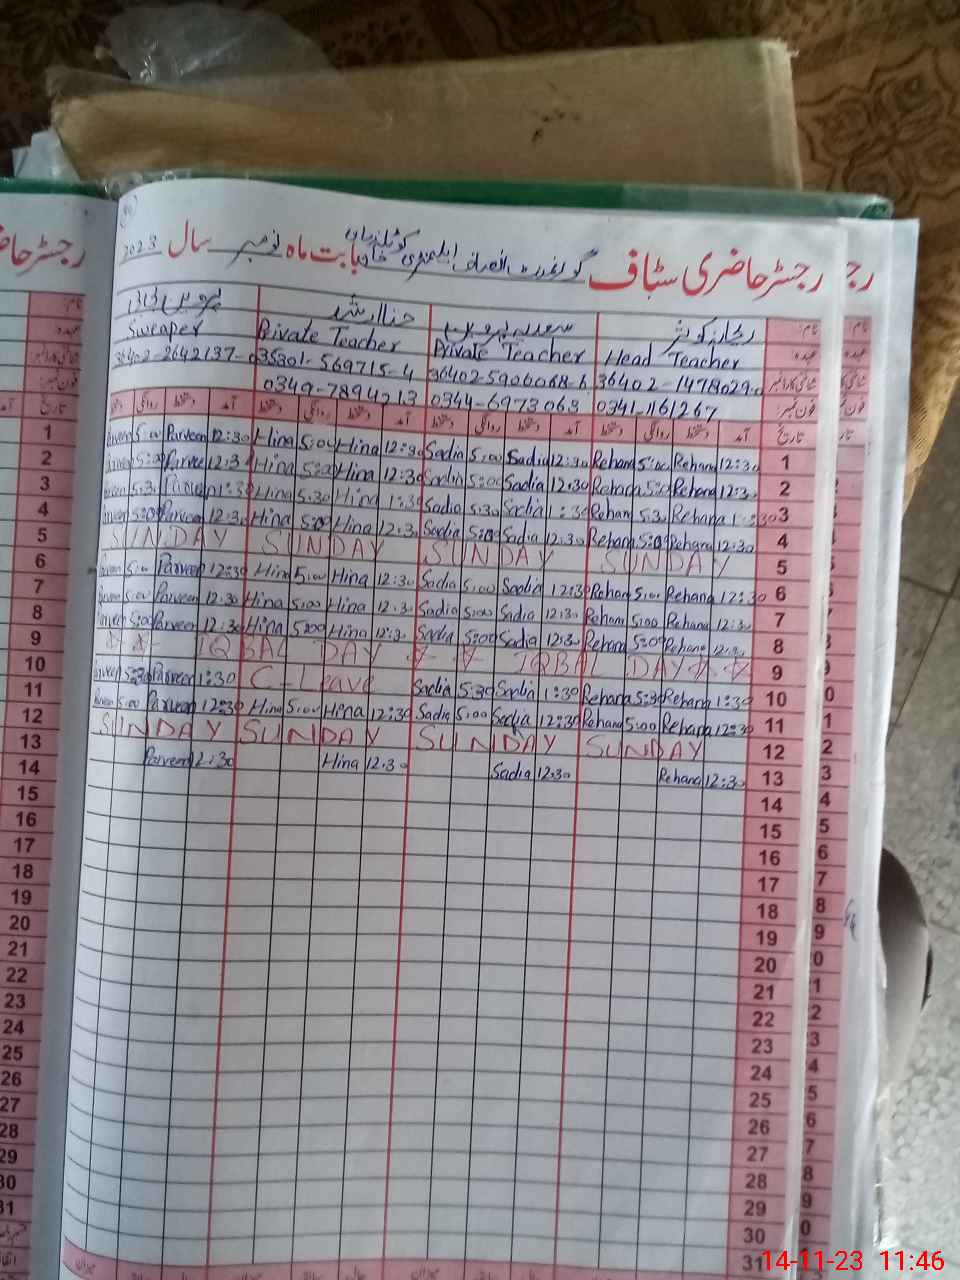 رجسٹر حاضری سٹاف گورنمنٹ بابت ماہ نومبر سال 2023
نام: ریحانہ کوثر سعدیہ پروین حنا ارشد پروین بی بی
عہدہ Head Teacher Private Teacher Private Teacher Sweaper
شناختی کارڈ نمبر 36402-1478029-0 36402-5906068-6 35301-569715-4 36402-2642137-0
فون نمبر: 0341-1161267 0344-6973063 0349-7894213
تاریخ آمد دستخط روانگی دستخط آمد دستخط روانگی دستخط آمد دستخط روانگی دستخط آمد دستخط روانگی دستخط
1 Parveen 5:00 Parveen 12:30 Hina 5:00 Hina 12:30 Sadia 5:00 Sadia 12:30 Rehana 5:00 Rehana 12:30 1
2 Parveen 5:00 Parveen 12:30 Hina 5:00 Hina 12:30 Sadia 5:00 Sadia 12:30 Rehana 5:00 Rehana 12:30 2
3 Parveen 5:30 Parveen 1:30 Hina 5:30 Hina 1:30 Sadia 5:30 Sadia 1:30 Rehana 5:30 Rehana 1:30 3
4 Parveen 5:00 Parveen 12:30 Hina 5:00 Hina 12:30 Sadia 5:00 Sadia 12:30 Rehana 5:00 Rehana 12:30 4
5 SUNDAY SUNDAY SUNDAY SUNDAY 5
6 Parveen 5:00 Parveen 12:30 Hina 5:00 Hina 12:30 Sadia 5:00 Sadia 12:30 Rehana 5:00 Rehana 12:30 6
7 Parveen 5:00 Parveen 12:30 Hina 5:00 Hina 12:30 Sadia 5:00 Sadia 12:30 Rehana 5:00 Rehana 12:30 7
8 Parveen 5:00 Parveen 12:30 Hina 5:00 Hina 12:30 Sadia 5:00 Sadia 12:30 Rehana 5:00 Rehana 12:30 8
9 IQBAL DAY IQBAL DAY 9
10 Parveen 5:30 Parveen 1:30 C-Leave Sadia 5:30 Sadia 1:30 Rehana 5:30 Rehana 1:30 10
11 Parveen 5:00 Parveen 12:30 Hina 5:00 Hina 12:30 Sadia 5:00 Sadia 12:30 Rehana 5:00 Rehana 12:30 11
12 SUNDAY SUNDAY SUNDAY SUNDAY 12
13 Parveen 12:30 Hina 12:30 Sadia 12:30 Rehana 12:30 13
14 14
15 15
16 16
17 17
18 18
19 19
20 20
21 21
22 22
23 23
24 24
25 25
26 26
27 27
28 28
29 29
30 30
31 31
14-11-23 11:46